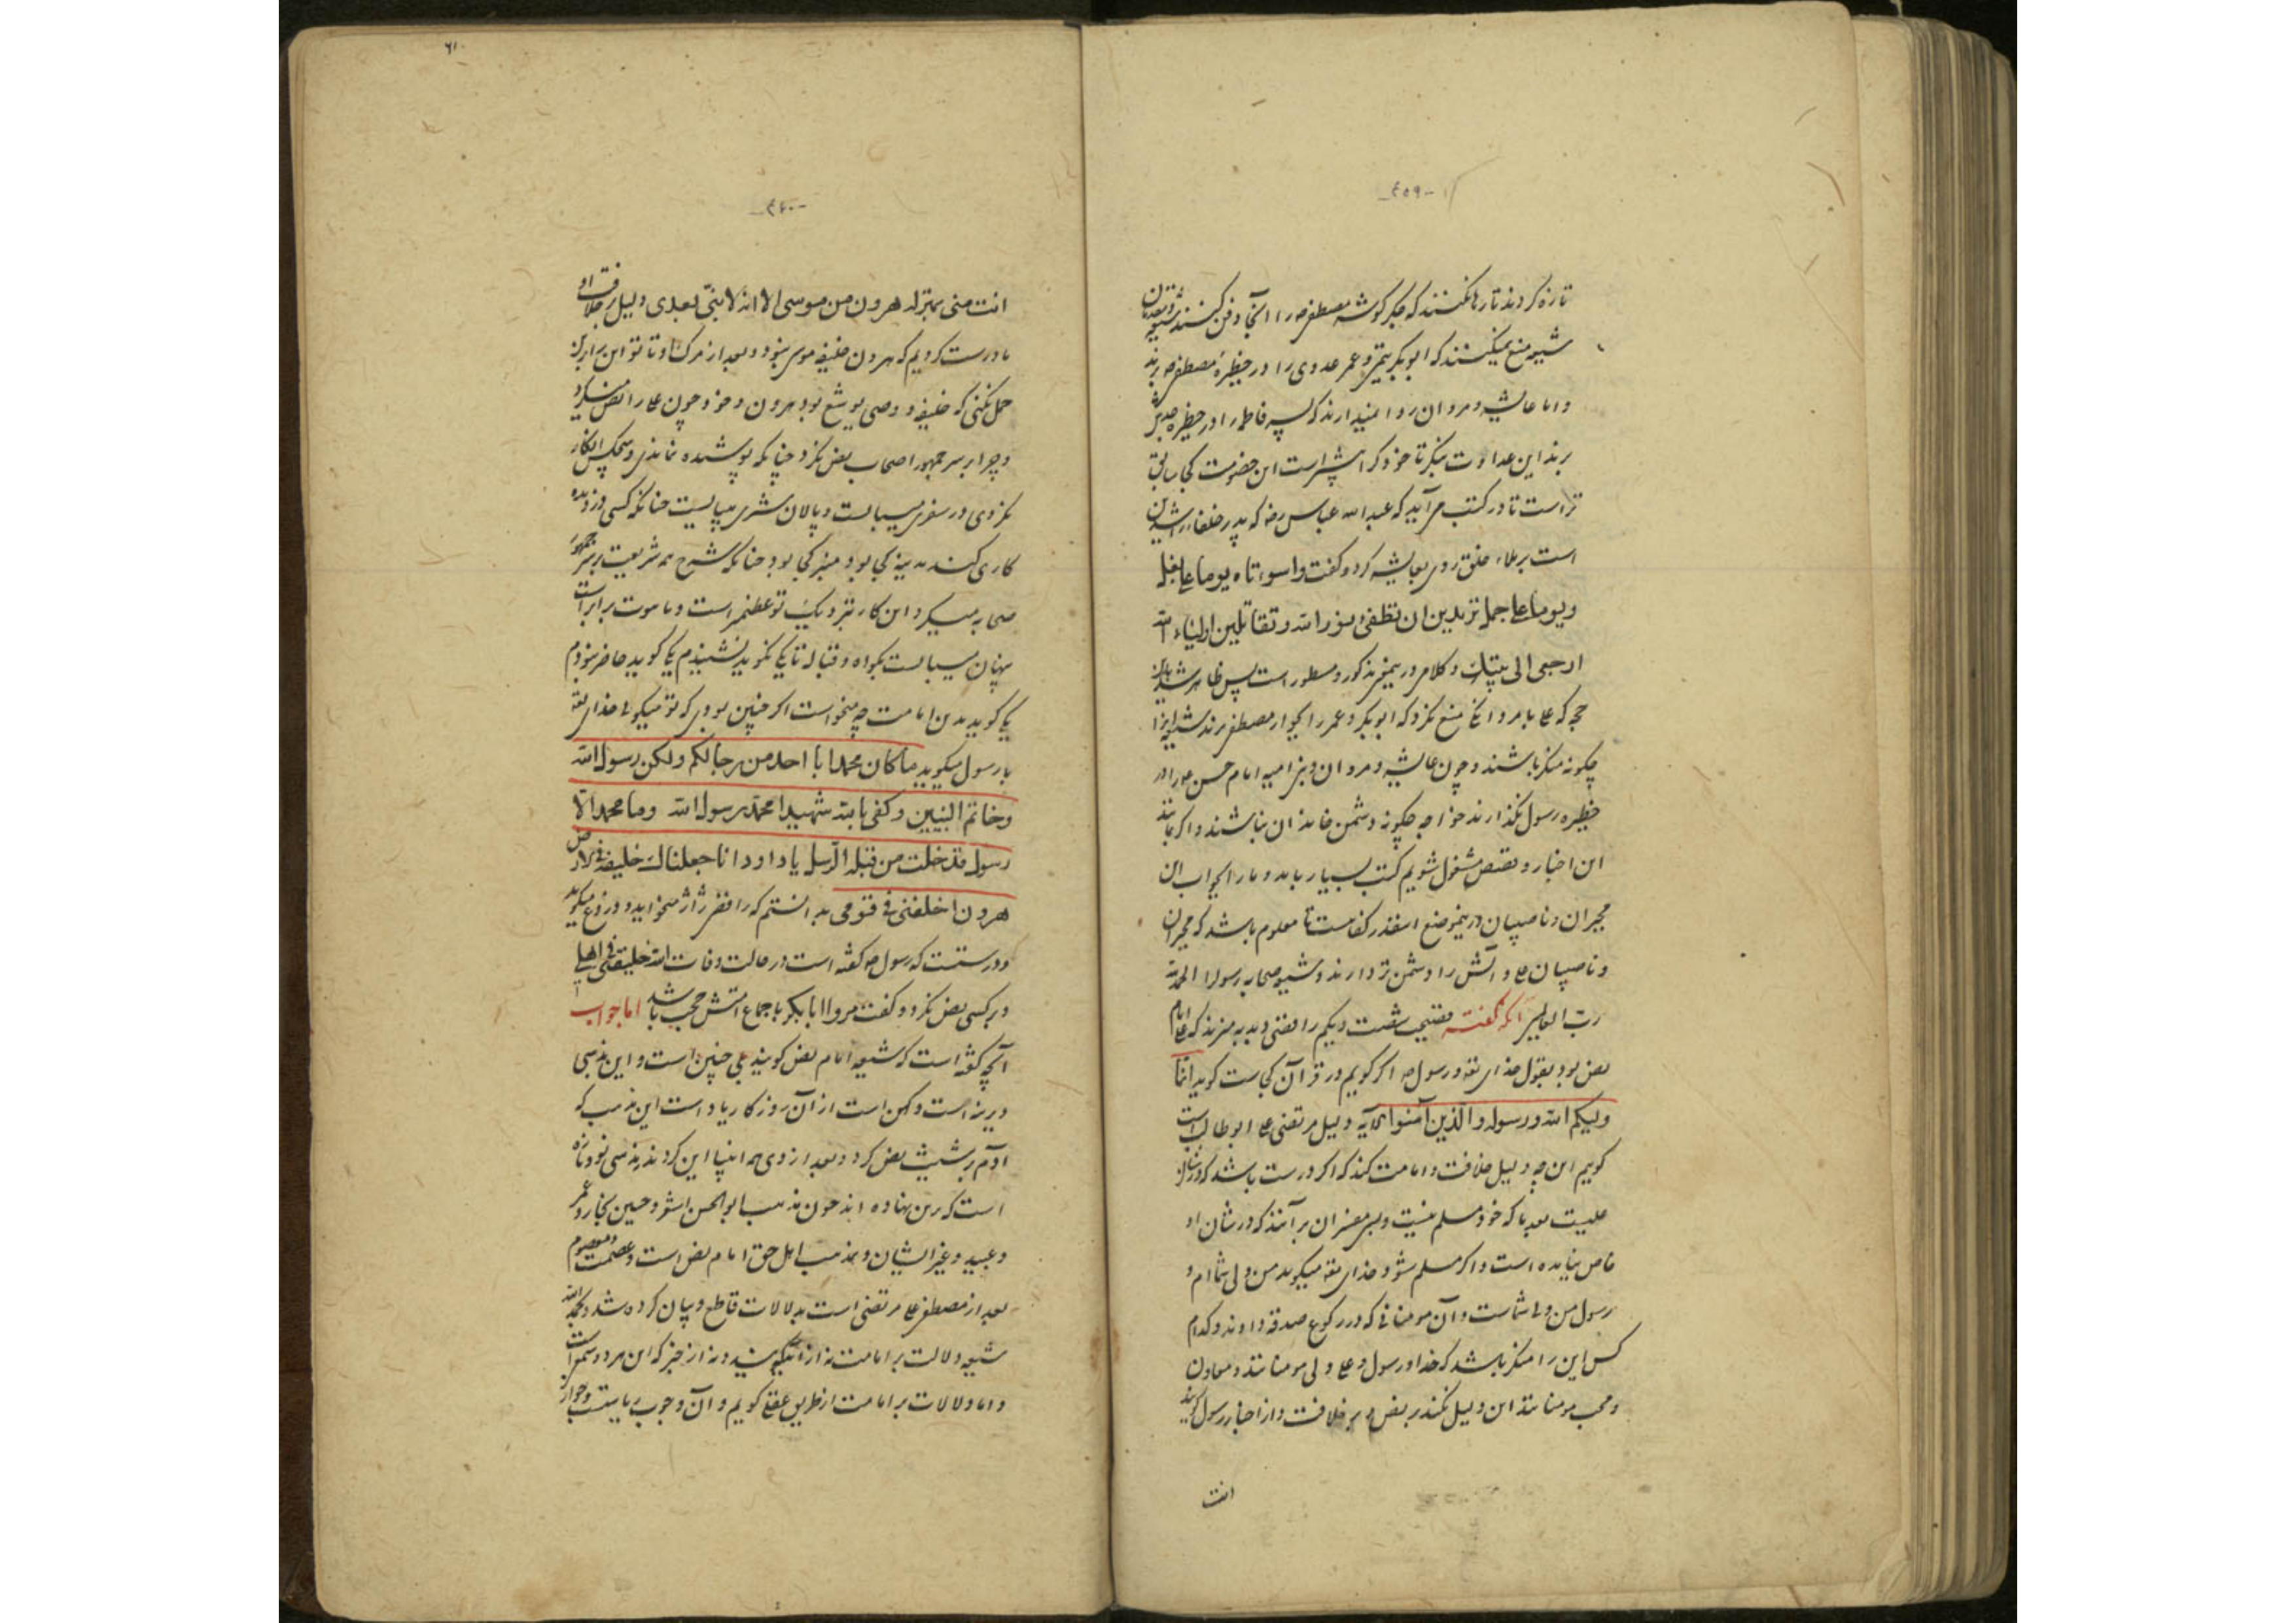 -۴۵۹-
تازه کردند تا رها نکنند که جگر گوشه مصطفی ص را آنجا دفن کنند
شیعه منع نمیکنند که ابوبکر تیمی و عمر عدوی را در حظیره مصطفی ص برند
و اما عایشه و مروان روا نمیدارند که پسر فاطمه را در حظیره جدش
برند این عداوت بنگر تا خود کرا بیشتر است این خصومت کجا
تر است تا در کتب می‌آید که عبدالله عباس رضه که پدر خلفاء راشدین
است بر ملاء خلق روی بعایشه کرد و گفت واسوأتاه یوما علی بغل
و یوما علی جمل تریدین ان تطفئ نور الله و تقاتلین اولیاء الله
ارجعی الی بیتک و کلام درین معنی مذکور و مسطور است پس ظاهر شد
که علی با مردانگی منع نکرد که ابوبکر و عمر را بجوار مصطفی برند شیعه
چگونه منکر باشند و چون عایشه و مروان و بنی امیه امام حسن را در
حظیره رسول نگذارند خواجه چگونه دشمن خاندان نباشند و اگر بمانند
این اخبار و قصص مشغول شویم کتب بسیار باید و ما را بجواب این
مجبران و ناصبیان درین موضع اینقدر کفایتست تا معلوم باشد که مجبران
و ناصبیان علی و آلش را دشمن تر دارند و شیعه صحابه رسول را الحمد لله
رب العالمین آنکه گفته فضیحت شصت و یکم رافضی وجه بمزیدند که علی امام
نص بود بقول خدای تعه و رسول ص اگر گویم در قرآن کجاست گوید انما
ولیکم الله و رسوله و الذین آمنوا الآیه دلیل مرتضی علی ابوطالب است
گویم این چه دلیل خلافت و امامت کند که اگر درست باشد که در شان
علیست بعد ما که خود مسلم نیست و بیشتر مفسران بر آنند که در شان او
خاص نیامده است و اگر مسلم شود خدای تعه میگوید من ولی شماام و
رسول من ولی شماست و آن مومنانی که در رکوع صدقه دادند و کدام
کس این را منکر باشد که خدا و رسول و علی ولی مومنانند و معاون
و محب مومنانند این دلیل نکند بر نص و بر خلافت و از اخبار رسول گویند
انت
-۴۶۰-
انت منی بمنزلة هرون من موسی الا انه لا نبی بعدی دلیل خلافت او
ما درست کردیم که هرون خلیفه موسی نبود بعد از مرگ او تا تو این بر آن
حمل نکنی که خلیفه و وصی یوشع بود نه هرون و خود چون علی را نص میکرد
و چرا بر سر جمهور اصحاب نص نکرد چنانکه پوشیده نماندی و هیچکس انکار
نکردی در سفر می‌بایست و پالان شتری می‌بایست چنانکه کسی دزدیده
کاری کند مدینه کجا بود منبر کجا بود چنانکه شرح همه شریعت بر سر جمهور
صحابه میکرد این کار نزدیک تو عظیمتر است و با موت برابر است
پنهان می‌بایست بگواه و قباله تا یکی نگوید نشنیدم یکی گوید حاضر نبودم
یکی گوید بدین امامت چه میخواست اگر چنین بودی که تو میگوئی خدای تعه
با رسول میگوید ما کان محمد ابا احد من رجالکم ولکن رسول الله
و خاتم النبیین و کفی بالله شهیدا محمد رسول الله وما محمد الا
رسول قد خلت من قبله الرسل یا داود انا جعلناک خلیفة فی الارض
هرون اخلفنی فی قومی بدانستم که رافضی ژاژ میخواید و دروغ میگوید
و درستست که رسول ص گفته است در حالت وفات الله خلیفتی فی اهلی
و بر کسی نص نکرد و گفت مروا ابابکر باجماع امتش حجت باشد اما جواب
آنچه گفته است که شیعه امام نص گویند بلی چنین است و این مذهبی
دیرینه است و کهن است از آن روزگار یاد است این مذهب که
آدم بر شیث نص کرد و بعد از وی همه انبیا این کردند نه مذهبی نو و تازه
است که نهاده اند چون مذهب ابوالحسن اشعری و حسین نجار و عمر
و عبید و غیر ایشان و بمذهب اهل حق امام نص است و معصوم
بعد از مصطفی علی مرتضی است بدلالات قاطع و بیان کرده شد بحمد الله
شیعه دلالت بر امامت نه از آیه گویند و نه از خبر که این هر دو سمعی است
و اما دلالات بر امامت از طریق عقل گویم و آن وجوب ریاست و جواز